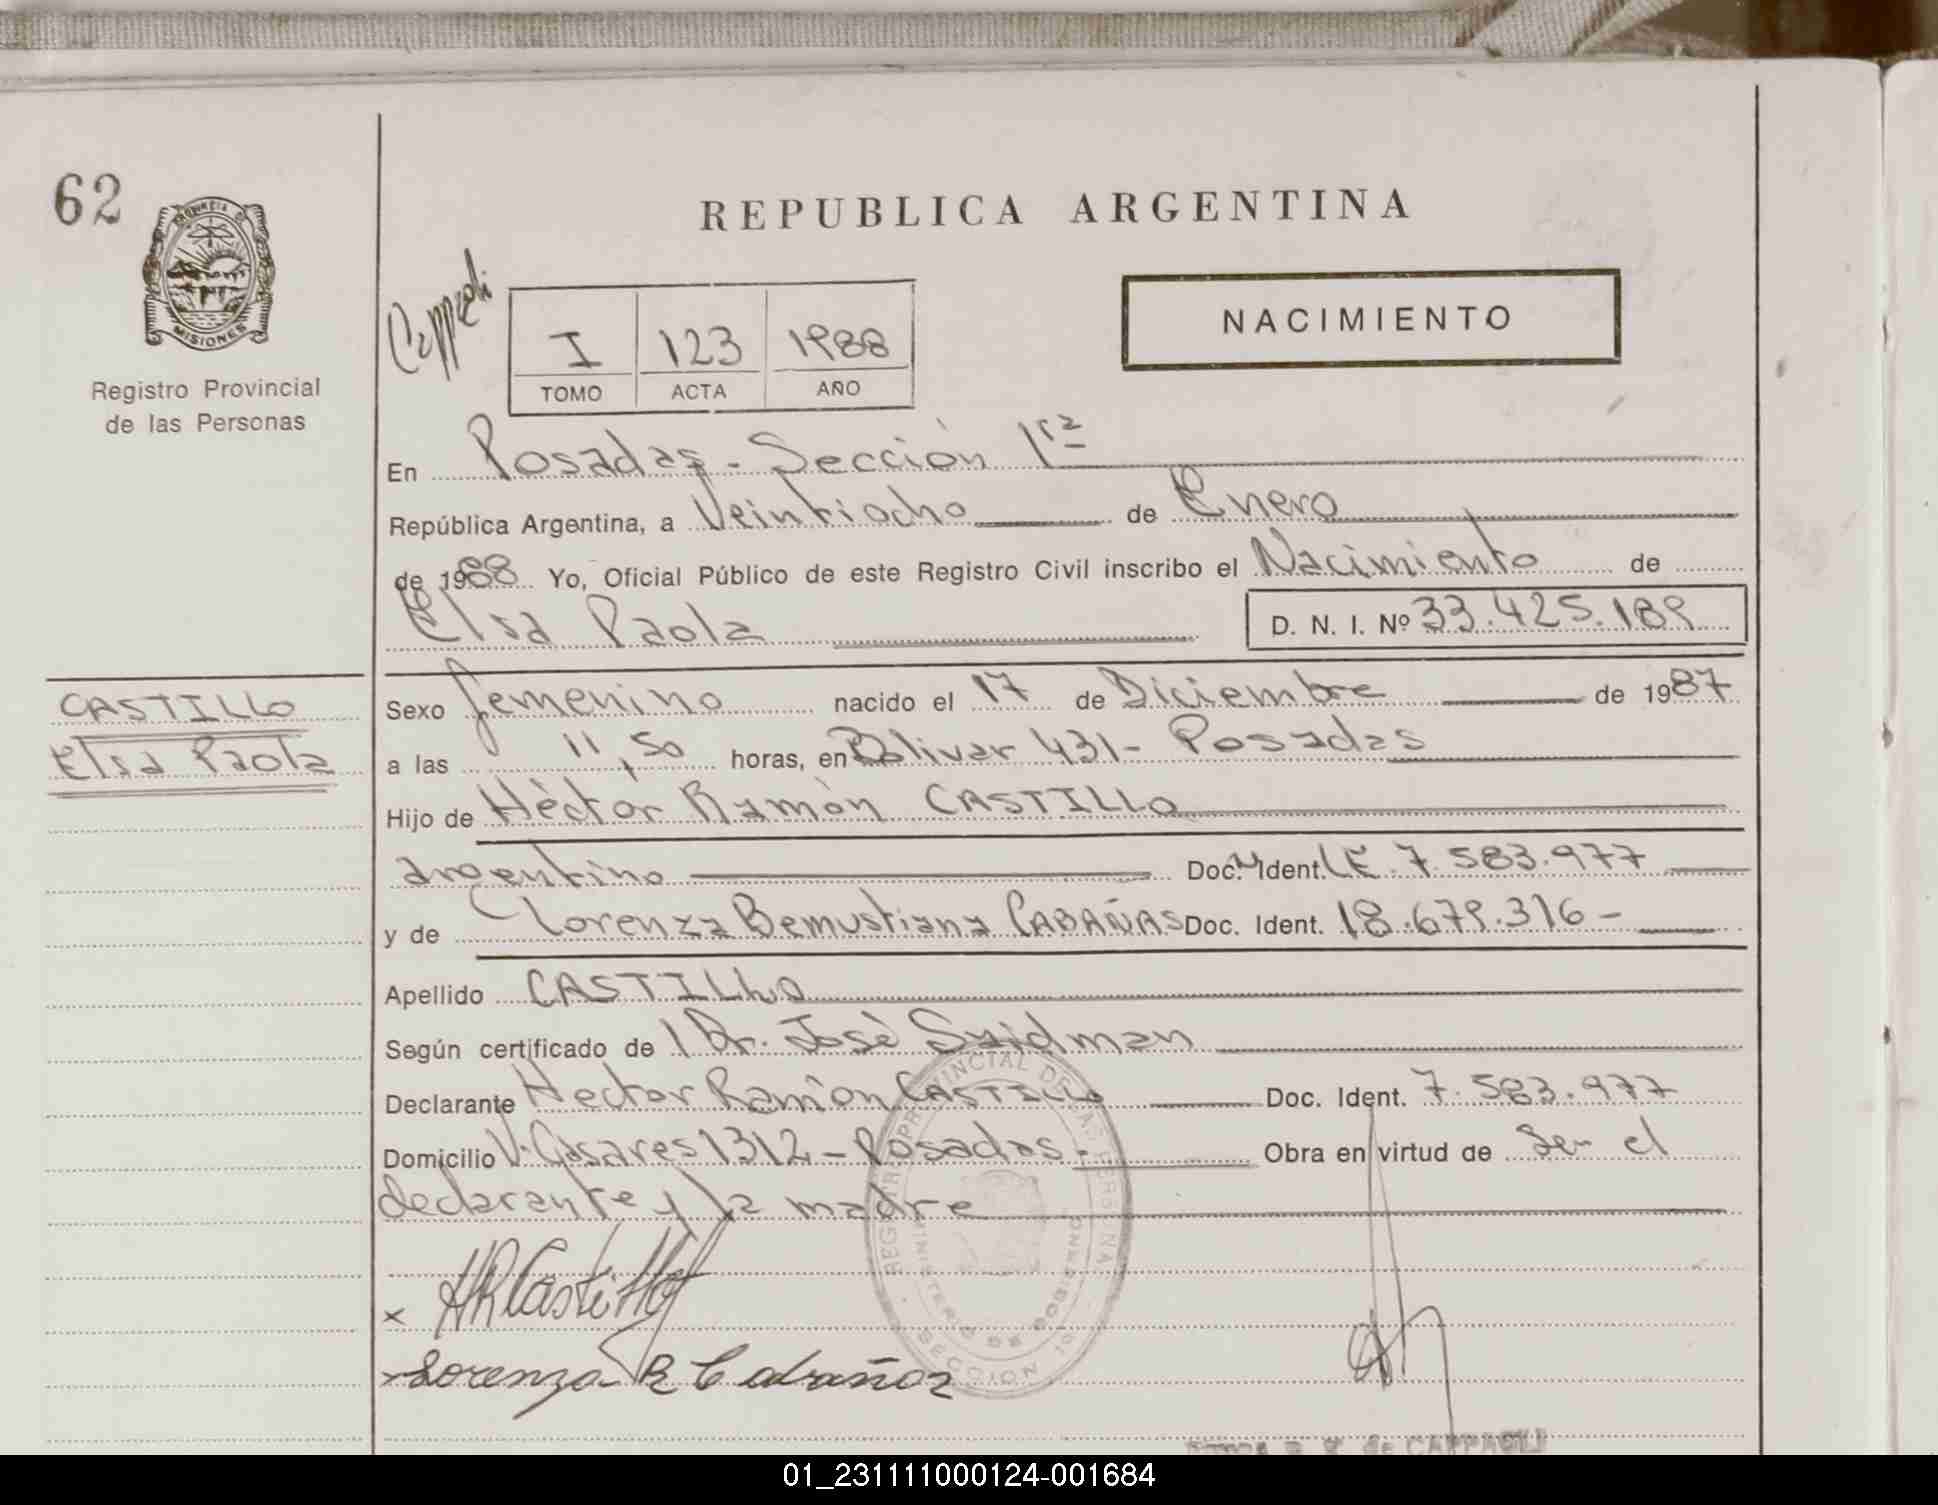 62
PROVINCIA DE
MISIONES
Registro Provincial
de las Personas
REPUBLICA ARGENTINA
Cappagli
I 123 1988
TOMO ACTA AÑO
NACIMIENTO
En Posadas - Sección 1ra
República Argentina, a Veintiocho de Enero
de 1988 Yo, Oficial Público de este Registro Civil inscribo el Nacimiento de
Elsa Paola D. N. I. Nº 33.425.189
CASTILLO
Elsa Paola
Sexo femenino nacido el 17 de Diciembre de 1987
a las 11,50 horas, en Bolivar 431 - Posadas
Hijo de Hèctor Ramòn CASTILLO
argentino Doc. Ident. LE. 7.583.977
y de Lorenza Bemustiana CABAÑAS Doc. Ident. 18.679.316 -
Apellido CASTILLO
Según certificado de Dr. Josè Saidman
Declarante Hector Ramòn CASTILLO Doc. Ident. 7.583.977
Domicilio V. Casares 1312 - Posadas. Obra en virtud de ser el
declarante y la madre
x HRCastillo
x Lorenza B Cabañas
REGISTRO PROVINCIAL DE LAS PERSONAS
MINISTERIO DE GOBIERNO
SECCION 1a
de CAPPAGLI
01_231111000124-001684